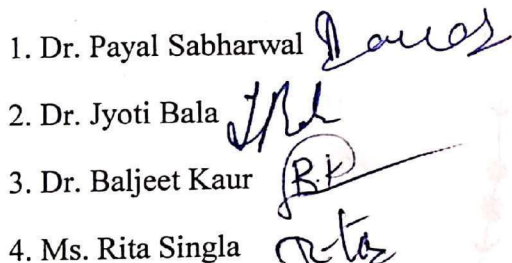 1. Dr. Payal Sabharwal
2. Dr. Jyoti Bala
3. Dr. Baljeet Kaur B.K
4. Ms. Rita Singla